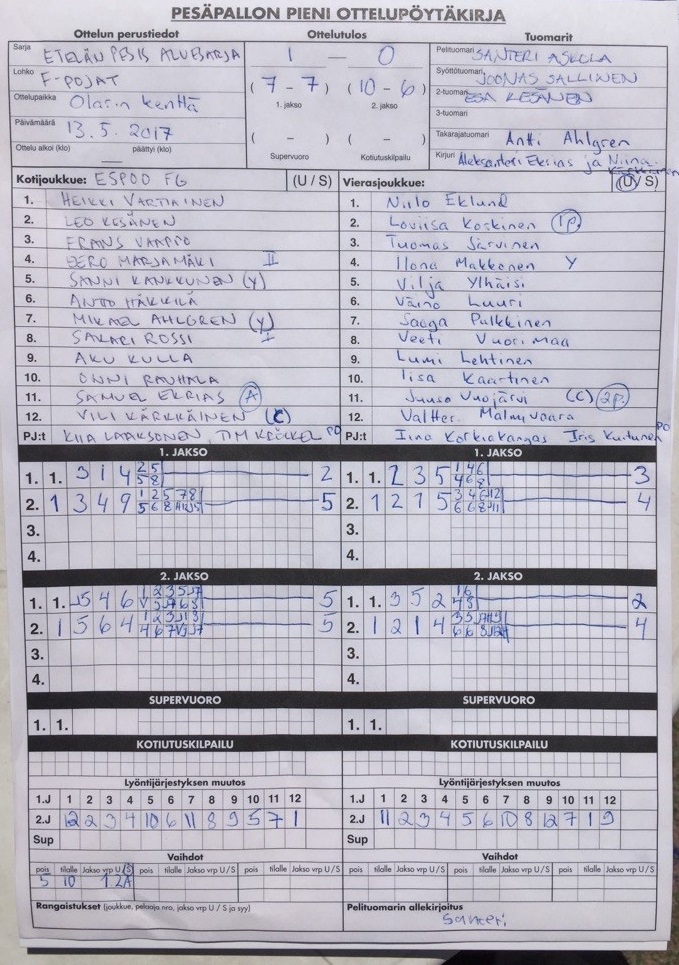 PESÄPALLON PIENI OTTELUPÖYTÄKIRJA
Ottelun perustiedot Ottelutulos Tuomarit
Sarja ETELÄN PESIS ALUESARJA 1 — 0 Pelituomari SANTERI ASKOLA
Lohko F-POJAT (7 - 7) (10 - 6) Syöttötuomari JOONAS SALLINEN
Ottelupaikka Olarin kenttä 1. jakso 2. jakso 2-tuomari ESA KESÄNEN
3-tuomari
Päivämäärä 13.5.2017 ( - ) ( - ) Takarajatuomari Antti Ahlgren
Ottelu alkoi (klo) — päättyi (klo) Supervuoro Kotiutuskilpailu Kirjuri Aleksanteri Ekrias ja Niina
Kotijoukkue: ESPOO FG (U / S) Vierasjoukkue: (U / S)
1. HEIKKI VARTIAINEN 1. Niilo Eklund
2. LEO KESÄNEN 2. Loviisa Koskinen 1p.
3. FRANS VAAPPO 3. Tuomas Järvinen
4. EERO MARJAMÄKI II 4. Ilona Makkonen Y
5. SANNI KANKKUNEN (Y) 5. Vilja Ylhäisi
6. ANTTO HÄKKILÄ 6. Väinö Luuri
7. MIKAEL AHLGREN (Y) 7. Saaga Pulkkinen
8. SAKARI ROSSI I 8. Veeti Vuorimaa
9. AKU KULLA 9. Lumi Lehtinen
10. ONNI RAUHALA 10. Iisa Kaartinen
11. SAMUEL EKRIAS A 11. Juuso Vuojärvi (C) 2p.
12. VILI KÄRKKÄINEN (C) 12. Valtteri Malmivaara
PJ:t KIIA LAAKSONEN, TIM KRÖCKEL PO PJ:t Iina Korkiakangas Iris Kuitunen PO
1. JAKSO 1. JAKSO
1. 1. 3 1 4 2 1. 1. 2 3 5 3
2. 1 3 4 9 5 2. 1 2 1 5 4
3. 3.
4. 4.
2. JAKSO 2. JAKSO
1. 1. 5 4 6 5 1. 1. 3 5 2 2
2. 1 5 6 4 5 2. 1 2 1 4 4
3. 3.
4. 4.
SUPERVUORO SUPERVUORO
1. 1. 1. 1.
KOTIUTUSKILPAILU KOTIUTUSKILPAILU
Lyöntijärjestyksen muutos Lyöntijärjestyksen muutos
1.J 1 2 3 4 5 6 7 8 9 10 11 12 1.J 1 2 3 4 5 6 7 8 9 10 11 12
2.J 12 2 3 4 10 6 11 8 9 5 7 1 2.J 11 2 3 4 5 6 10 8 12 7 1 9
Sup Sup
Vaihdot Vaihdot
pois tilalle Jakso vrp U/S pois tilalle Jakso vrp U/S pois tilalle Jakso vrp U/S pois tilalle Jakso vrp U/S pois tilalle Jakso vrp U/S pois tilalle Jakso vrp U/S
5 10 1.2A
Rangaistukset (joukkue, pelaaja nro, jakso vrp U / S ja syy) Pelituomarin allekirjoitus
Santeri